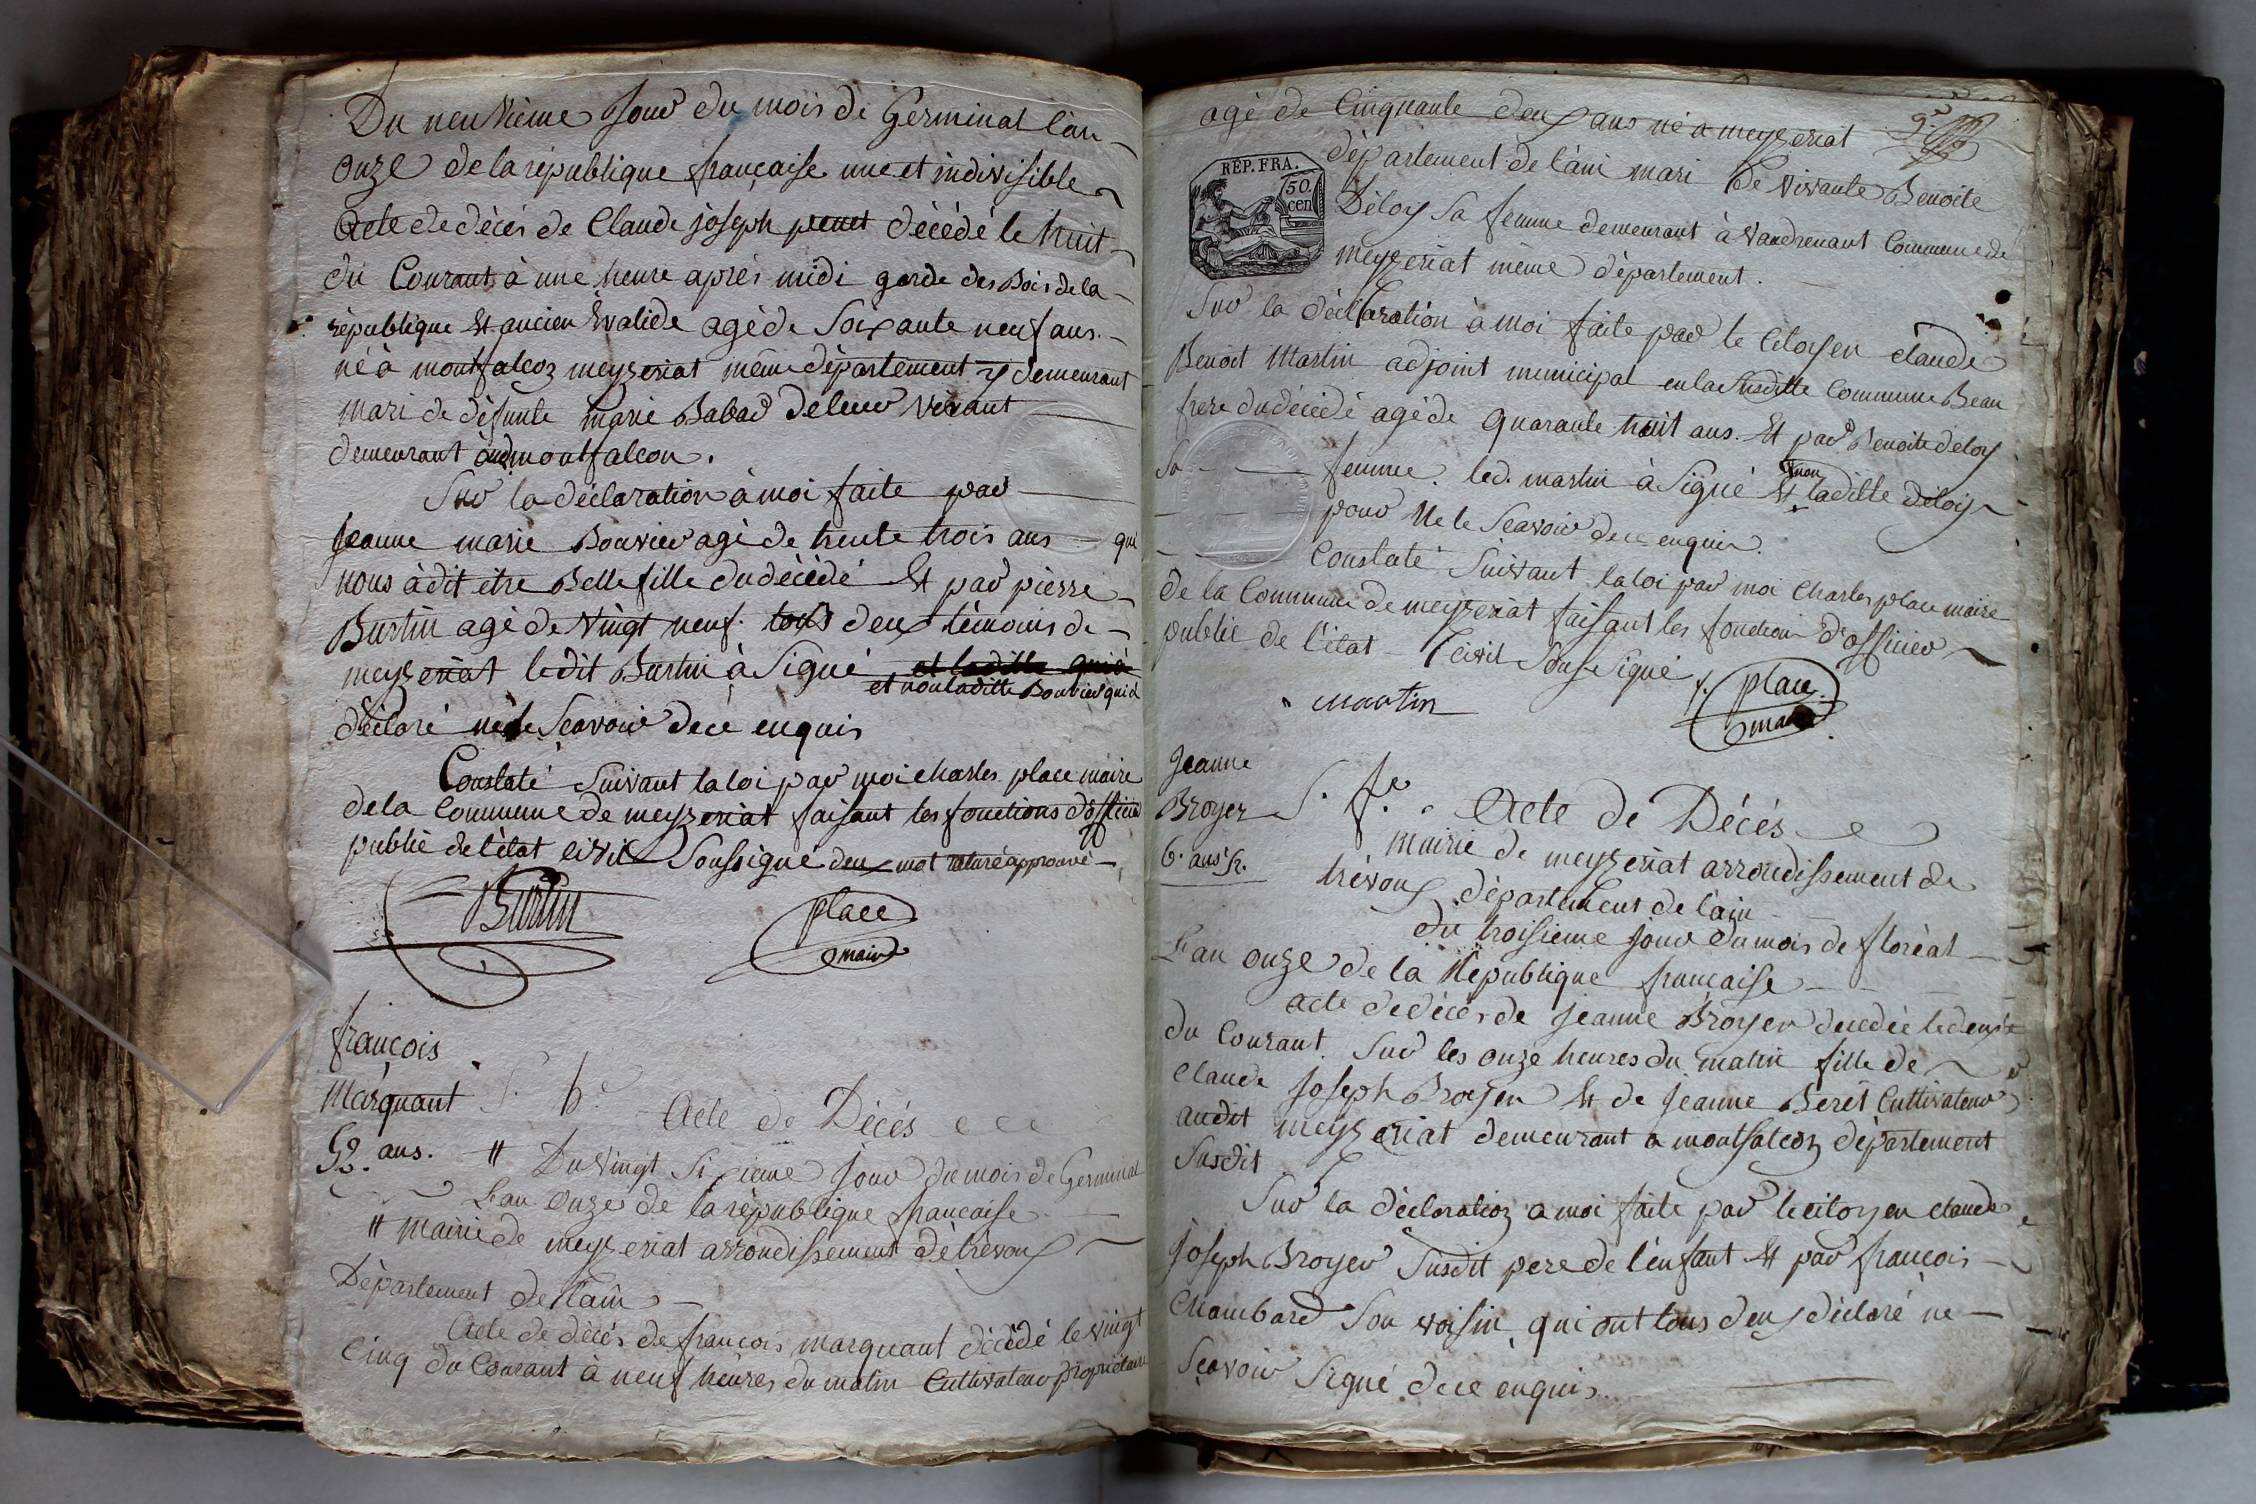 Du neuvième Jour du mois de Germinal l'an
onze de la république française une et indivisible
Acte de décès de Claude joseph decédé le huit
du Courant à une heure après midi garde des Bois de la
république Et ancien Evalide agé de Soixante neuf ans.
né à montfalcon meyzeriat même département y demeurant
mari de défunte marie Babad deleur vivant
demeurant montfalcon.
Sur la déclaration à moi faite par
Jeanne marie Bouvier agé de trente trois ans qui
nous à dit etre Belle fille du décédé Et par pierre
Burtin agé de vingt neuf. tous deux témoins de
meyzeriat ledit Burtin à Signé et laditte qui à
et non laditte Bouvier qui à
déclaré ne le Scavoir de ce enquis
Constaté Suivant la loi par moi charles place maire
de la Commune de meyzeriat faisant les fonctions d'officier
public de l'état civil Soussigné deux mot raturé approuvé
Burtin
place
maire
françois
Marquant
52. ans.
S. h.e Acte de Décés
# Du vingt Sixieme Jour du mois de Germinal
L'an onze de la république francaise
# mairie de meyzeriat arrondissement de trévoux
Département de l'ain
Acte de décés de françois marquant décédé le vingt
Cinq du Courant à neuf heures du matin Cultivateur propriétaire
agé de Cinquante deux ans né a meyzeriat
9e
REP. FRA.
50.
cen
département de l'ain mari De vivante Benoite
Déloy Sa femme demeurant à vandrenant Commune de
meyzeriat même département.
Sur la déclaration à moi faite par le Citoyen claude
Benoit Martin adjoint municipal en la Susditte Commune Beau
frere du décédé agé de quarante huit ans. Et par Benoite deloy
Sa femme. led. martin à Signé Et non laditte déloy
pour ne le Scavoir de ce enquis.
Constaté Suivant la loi par moi Charles place maire
de la Commune de meyzeriat faisant les fonction d'officier
public de l'état Civil Soussigné
martin
place
maire
Jeanne
Broyer
6. ans
S. f.e Acte de Décés
Mairie de meyzeriat arrondissement de
trévoux département de l'ain
du troisieme jour du mois de floréal
L'an onze de la République française
acte de décés de Jeanne Broyer decedée le deux
du Courant. Sur les onze heures du matin fille de
Claude Joseph Broyer Et de Jeanne Beret Cultivateur
audit meyzeriat demeurant a montfalcon département
Susdit
Sur la déclaration a moi faite par le citoyen claude
Joseph Broyer Susdit pere de l'enfant Et par françois
Chambard Son voisin qui ont tous deux déclaré ne
Scavoir Signé de ce enquis.